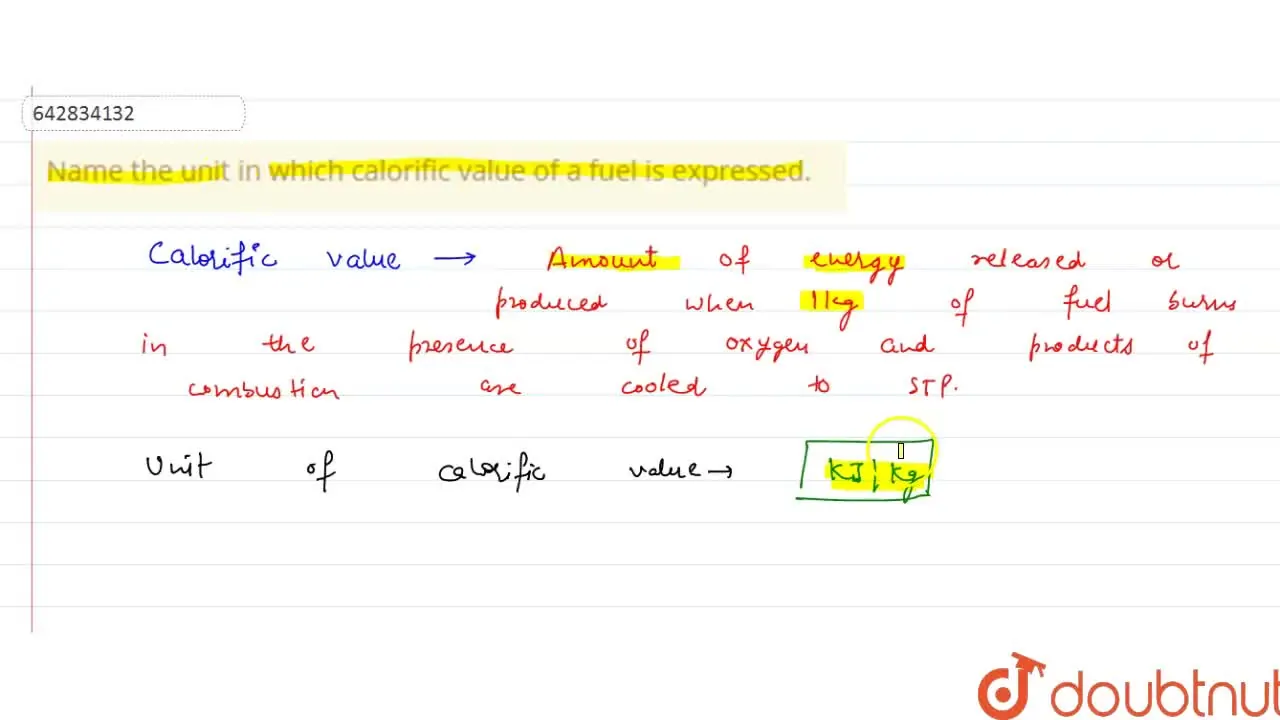 642834132
Name the unit in which calorific value of a fuel is expressed.
Calorific value → Amount of energy released or
produced when 1kg of fuel burns
in the presence of oxygen and products of
combustion are cooled to STP.
Unit of calorific value → KJ | Kg
doubtnut